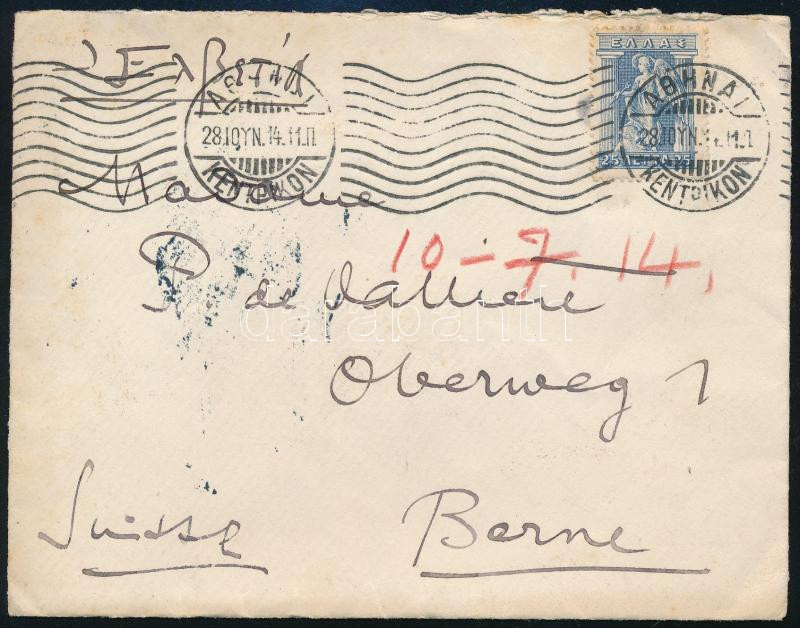 ΕΛΛΑΣ
25 ΛΕΠΤΑ 25
ΑΘΗΝΑΙ
28.ΙΟΥΝ.14.11.Π
ΚΕΝΤΡΙΚΟΝ
ΑΘΗΝΑΙ
28.ΙΟΥΝ.
ΚΕΝΤΡΙΚΟΝ
Madame
10-7.14.
P. de Vallière
Oberweg 1
Suisse
Berne
darabanth